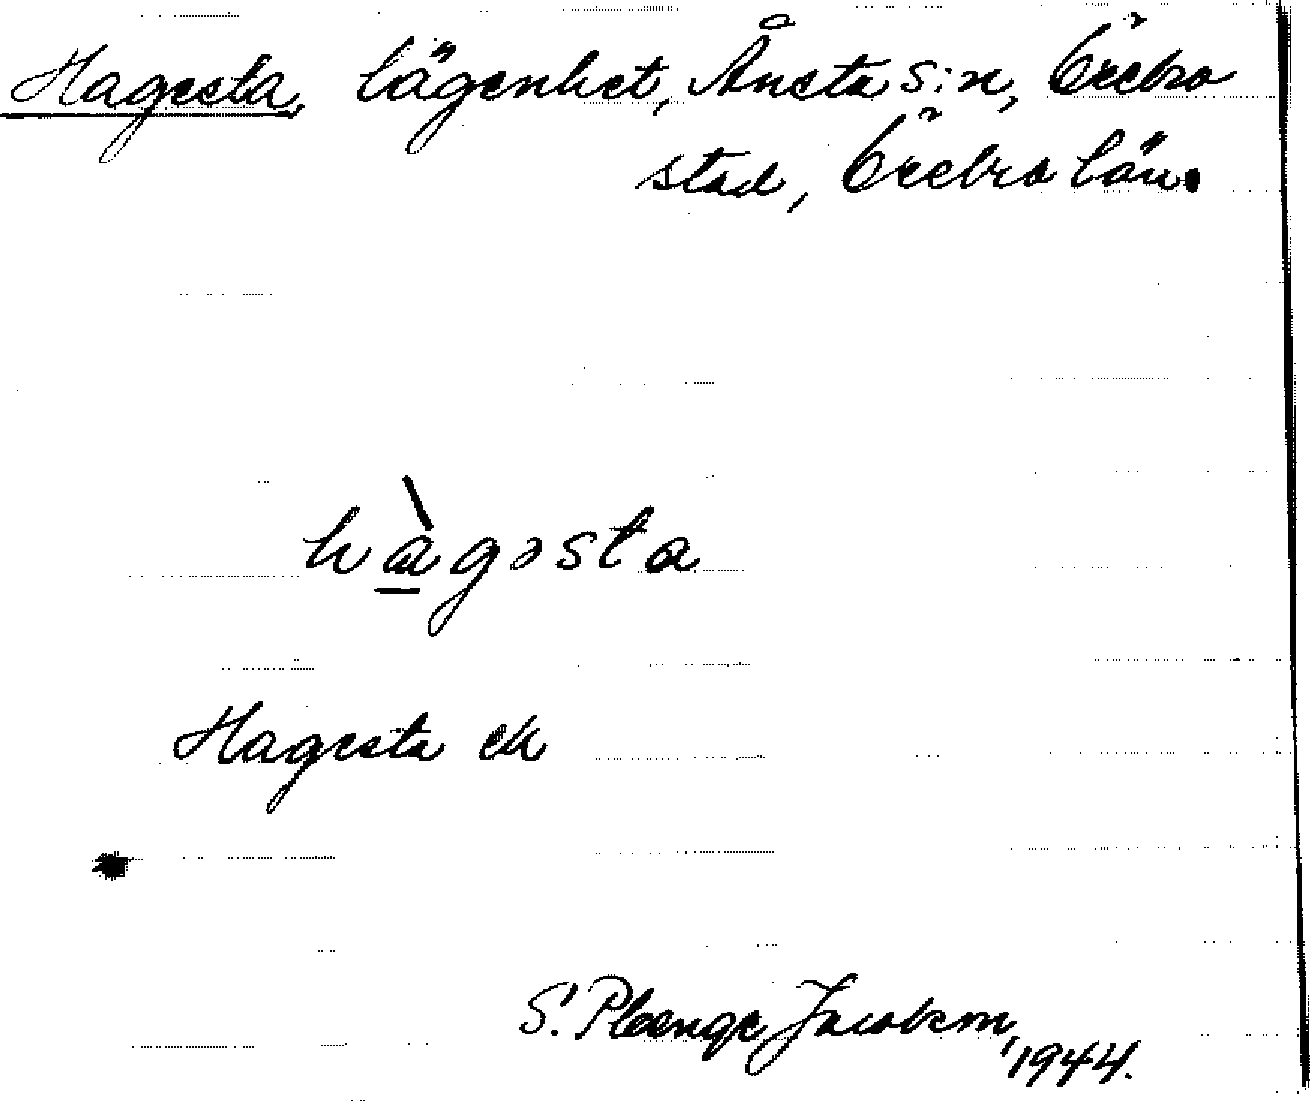 Hagesta, lägenhet, Ånsta s:n, Örebro
stad, Örebro län.
hàgəsta
Hagesta ek
S. Pleenge Jacobson, 1944.